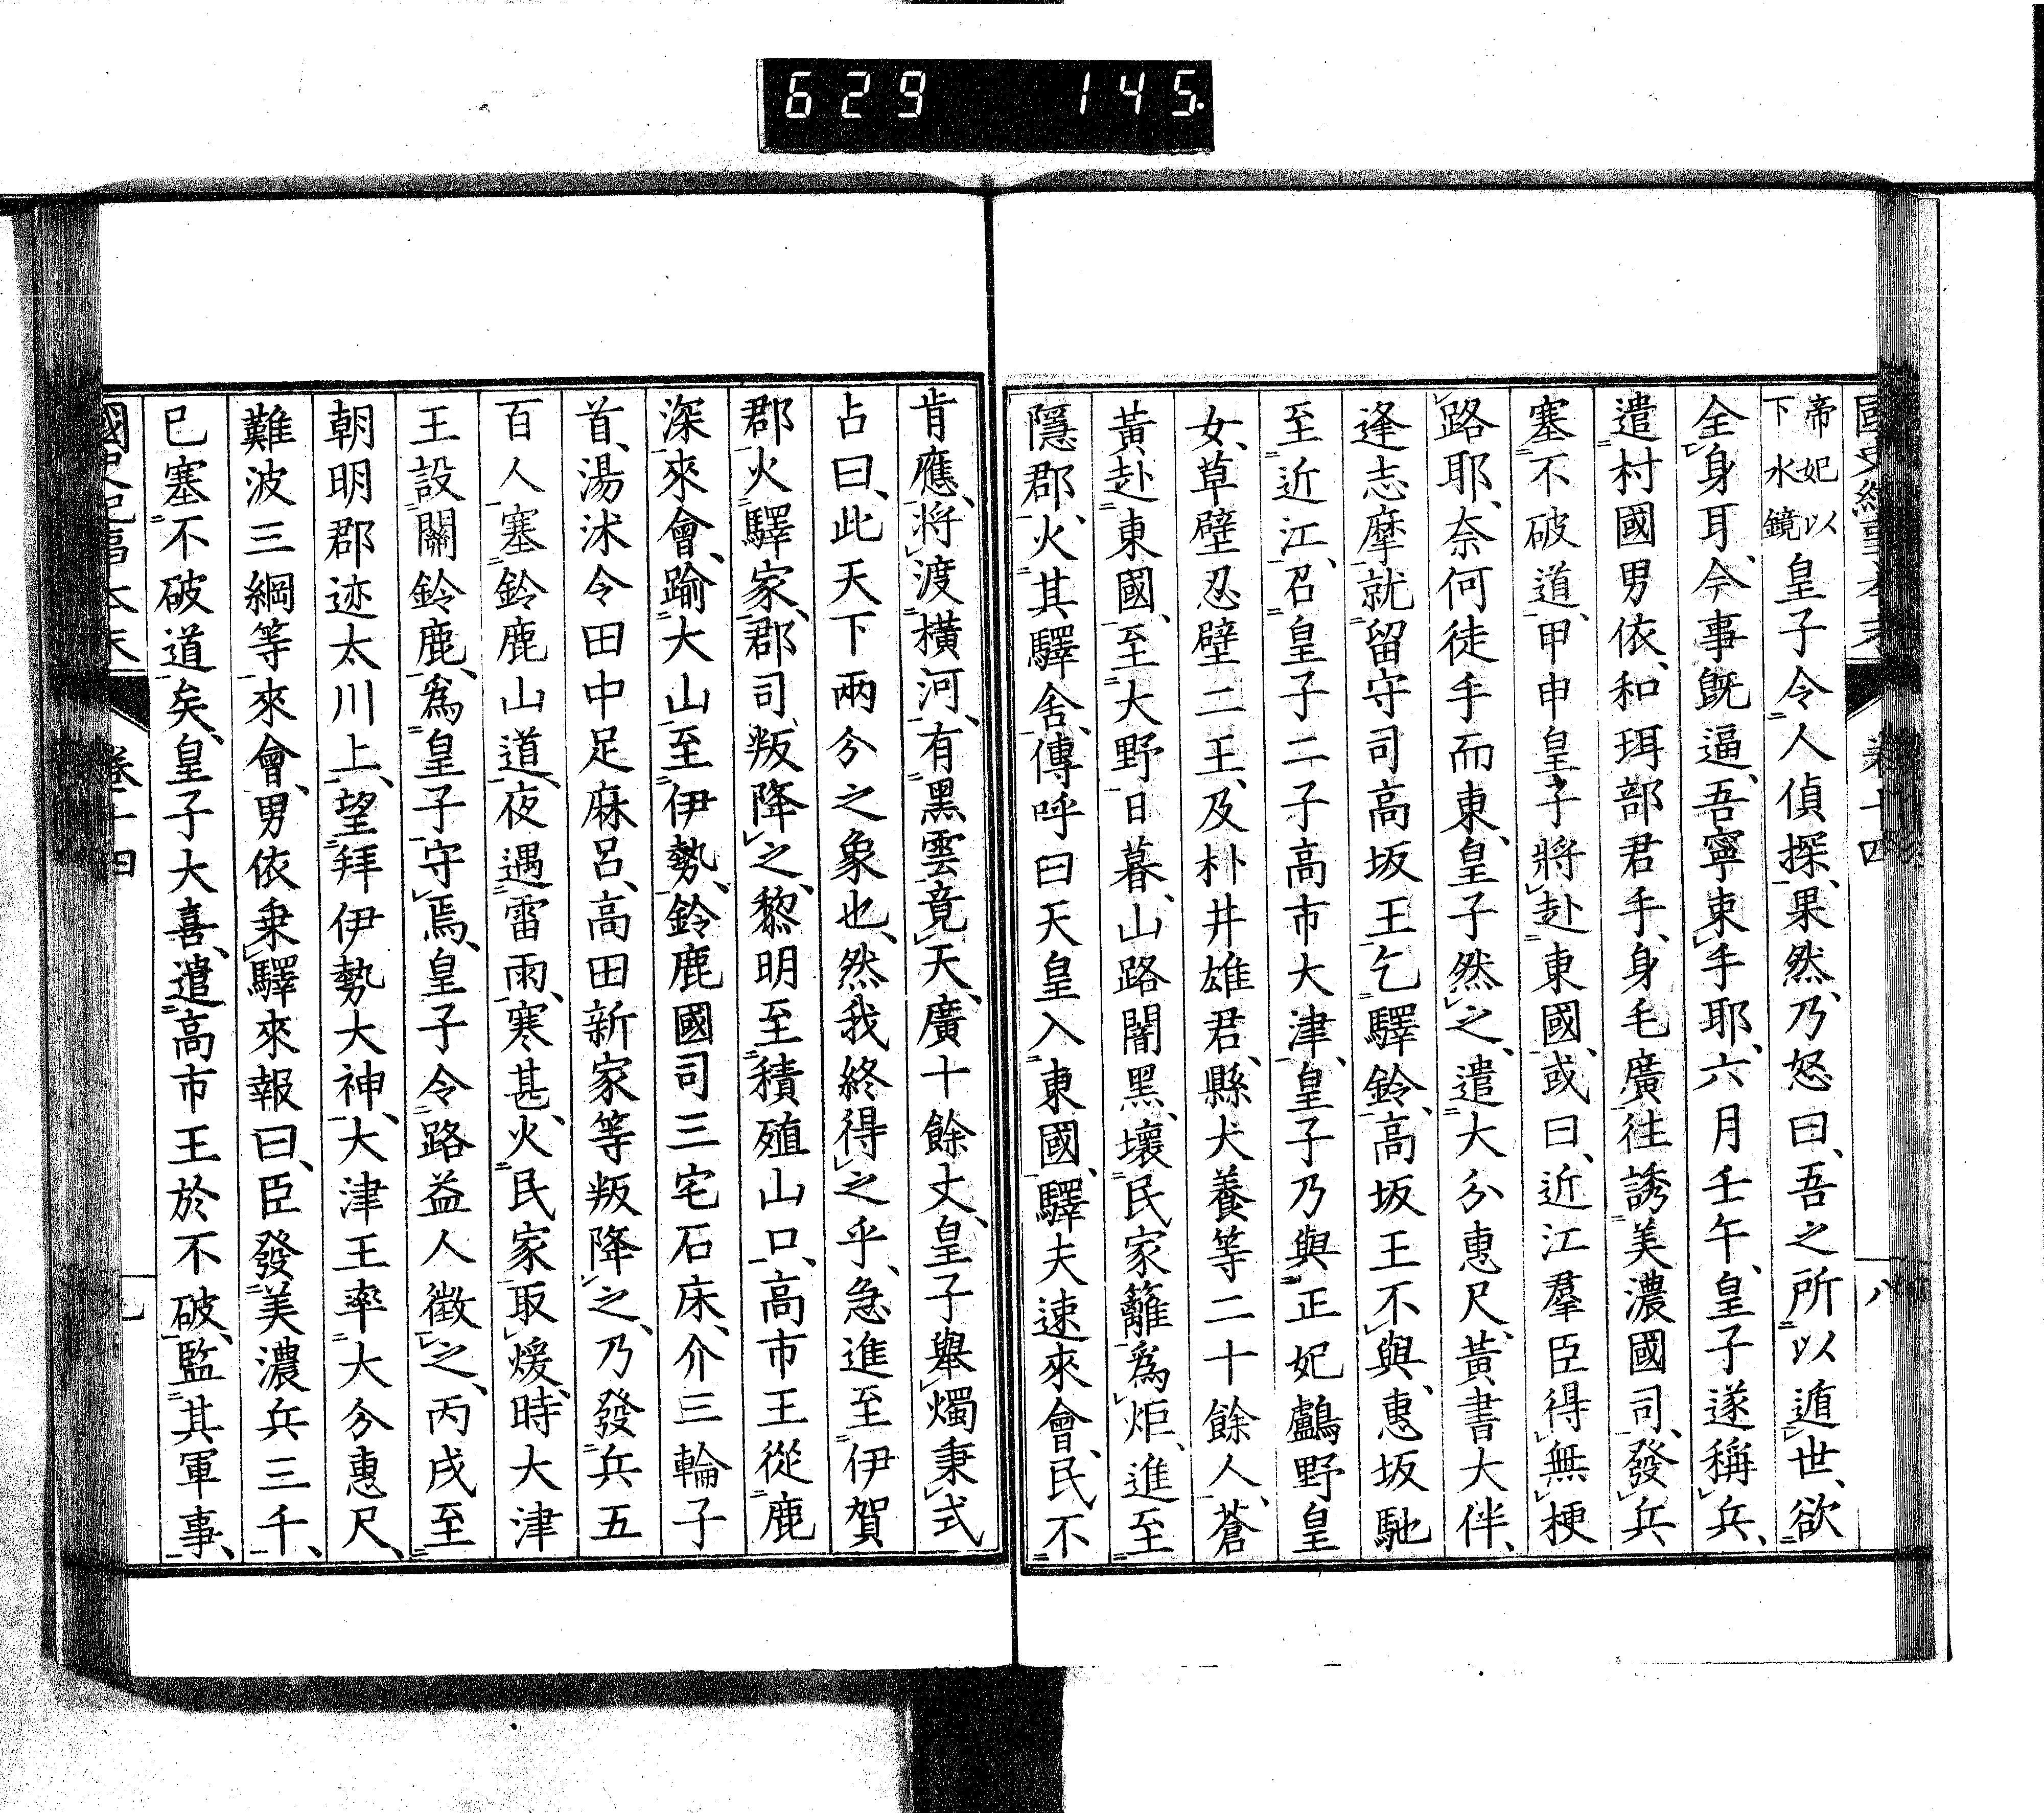 629 145.
帝妃以
下水鏡
皇子令人偵探、果然、乃怒曰、吾之所以遁世、欲
全身耳、今事既逼、吾寧束手耶、六月壬午、皇子遂稱兵、
遣村國男依、和珥部君手、身毛廣往誘美濃國司、發兵
塞不破道、甲申皇子將赴東國、或曰、近江羣臣得無梗
路耶、奈何徒手而東、皇子然之、遣大分惠尺、黃書大伴、
逢志摩就留守司高坂王乞驛鈴、高坂王不與、惠坂馳
至近江、召皇子二子高市大津、皇子乃與正妃鸕野皇
女、草壁忍壁二王、及朴井雄君、縣犬養等二十餘人、蒼
黃赴東國、至大野日暮、山路闇黑、壞民家籬爲炬、進至
隱郡、火其驛舍、傳呼曰天皇入東國、驛夫速來會、民不
肯應、將渡橫河、有黑雲竟天、廣十餘丈、皇子舉燭秉式
占曰、此天下兩分之象也、然我終得之乎、急進至伊賀
郡、火驛家、郡司叛降之、黎明至積殖山口、高市王從鹿
深來會、踰大山至伊勢、鈴鹿國司三宅石床、介三輪子
首、湯沐令田中足麻呂、高田新家等叛降之、乃發兵五
百人塞鈴鹿山道、夜遇雷雨、寒甚、火民家取煖、時大津
王設關鈴鹿、爲皇子守焉、皇子令路益人徵之、丙戌至
朝明郡迹太川上、望拜伊勢大神、大津王率大分惠尺、
難波三綱等來會、男依乘驛來報曰、臣發美濃兵三千、
已塞不破道矣、皇子大喜、遣高市王於不破、監其軍事、